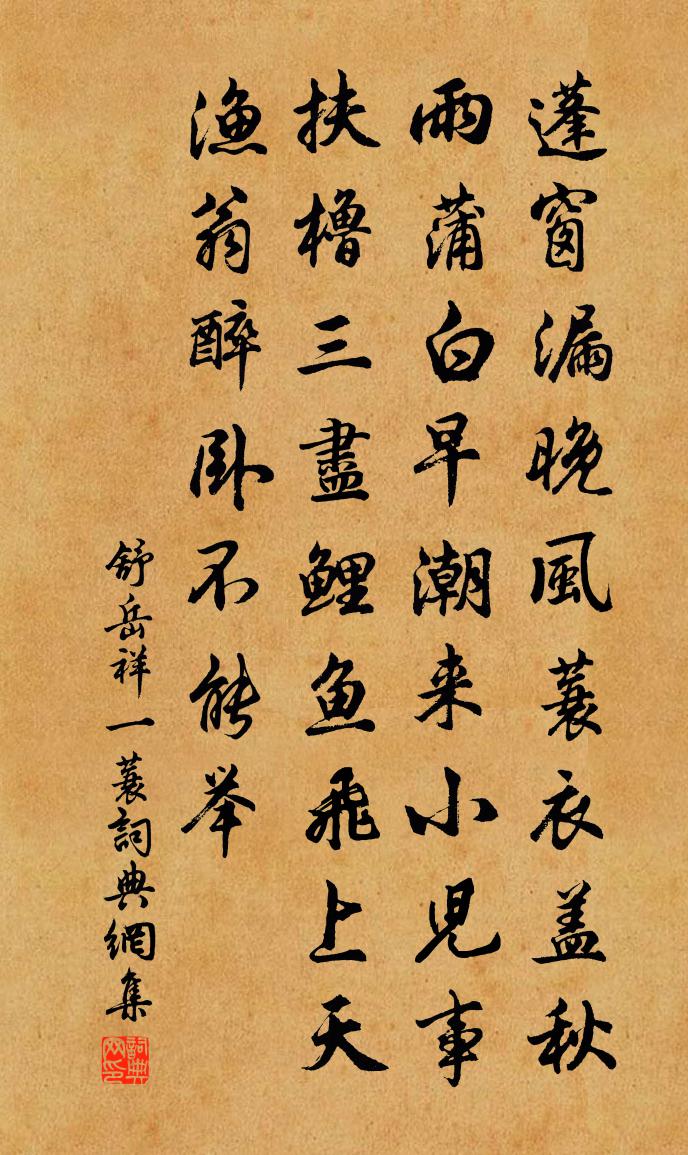 蓬窗漏晚風蓑衣蓋秋
雨蒲白早潮来小児事
扶櫓三盡鲤鱼飛上天
漁翁醉卧不能举
舒岳祥一蓑詞典網集
詞典网印